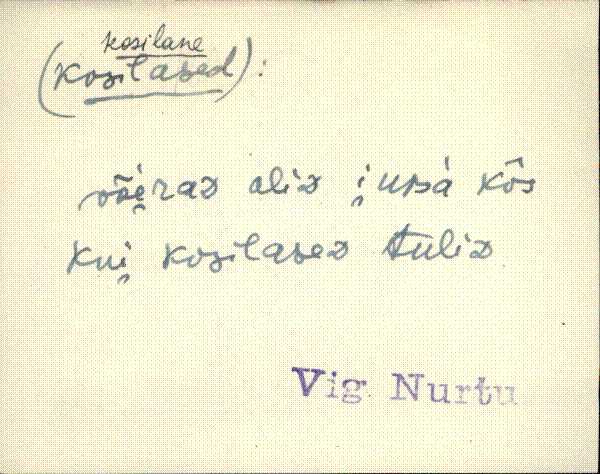 kosilane
(kosilased):
või̯raᴅ oliᴅ i̯ussà kôs
kui̯ kosilaseᴅ tuliᴅ
Vig Nurtu